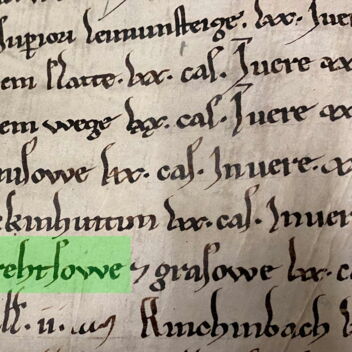 superiori leimunsteige. lxx. Juer
em slatte. lxx. cas. Juere xx
em wege lxx. cas. Juere xx
sowe lxx. cas. Inuere. x
kinhuttun lxx. cas. Inuer
rehtsowe ⁊ grasowe lxx. c
ll. ii. Kinchinbach l